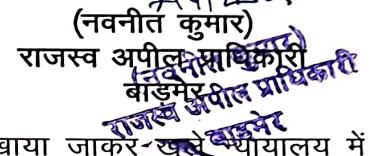 (नवनीत कुमार)
राजस्व अपील प्राधिकारी
बाडमेर
(नवनीत कुमार)
राजस्व अपील प्राधिकारी
बाडमेर
खाया जाकर खुले न्यायालय में